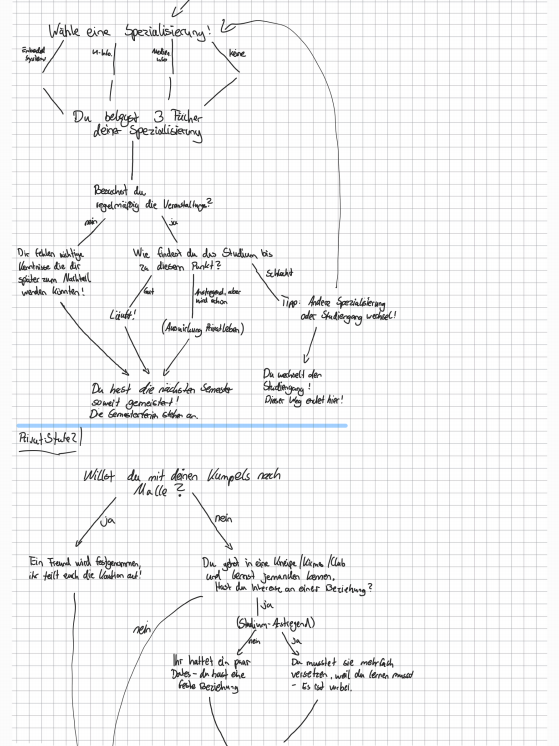 Wähle eine Spezialisierung!
Embedded
System
keine
Du belegst 3 Fächer
deiner Spezialisierung
Besuchst du
regelmäßig die Veranstaltunge?
nein
ja
Dir fehlen wichtige
Kenntnisse die dir
später zum Nachteil
werden könnten!
Wie findest du das Studium bis
zu diesem Punkt?
Gut
Anstregend, aber
wird schon
Schlecht
Läuft!
(Auswirkung Privatleben)
Tipp: Andere Spezialisierung
oder Studiengang wechsel!
Du wechselt den
Studiengang!
Dieser Weg endet hier!
Du hast die nächsten Semester
soweit gemeistert!
Die Semesterferien stehen an.
Privat Stufe 2
Willst du mit deinen Kumpels nach
Malle?
ja
nein
Ein Freund wird festgenommen,
ihr teilt euch die Kaution auf!
Du gehst in eine Kneipe/ /Club
und lernst jemanden kennen.
Hast du Interesse an einer Beziehung?
nein
ja
(Studium-Anstregend)
nein
ja
Ihr hattet ein paar
Dates - du hast eine
feste Beziehung
Du musstet sie mehrfach
versetzen, weil du lernen musst
- Es ist vorbei.